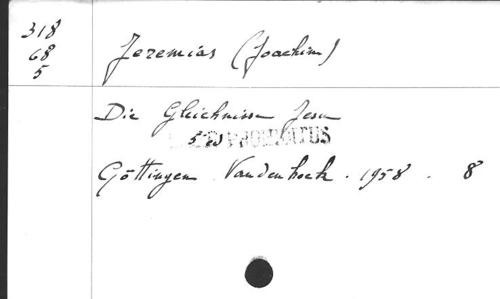 318
68
5
Jeremias (Joachim)
Die Gleichnisse Jesu
5 ed
Göttingen Vandenhoek . 1958 . 8